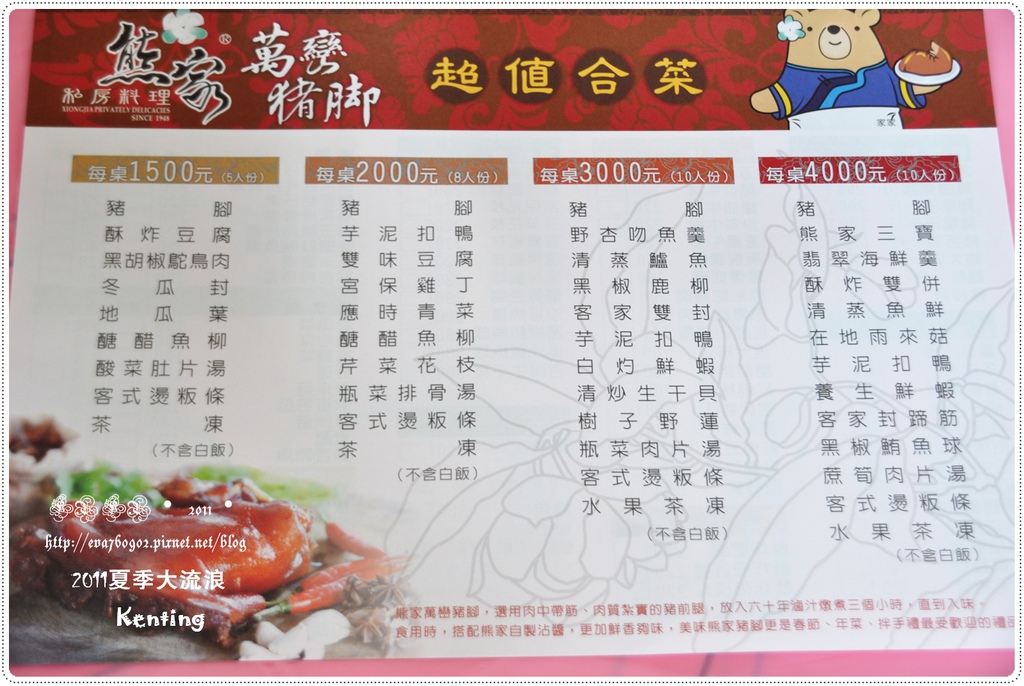 熊家®
私房料理
XIONGJIA PRIVATELY DELICACIES
SINCE 1948
萬巒
豬腳
超值合菜
家家
每桌1500元(5人份)
豬腳
酥炸豆腐
黑胡椒鴕鳥肉
冬瓜封
地瓜葉
醣醋魚柳
酸菜肚片湯
客式燙粄條
茶凍
(不含白飯)
每桌2000元(8人份)
豬腳
芋泥扣鴨
雙味豆腐
宮保雞丁
應時青菜
醣醋魚柳
芹菜花枝
瓶菜排骨湯
客式燙粄條
茶凍
(不含白飯)
每桌3000元(10人份)
豬腳
野杏吻魚羹
清蒸鱸魚
黑椒鹿柳
客家雙封
芋泥扣鴨
白灼鮮蝦
清炒生干貝
樹子野蓮
瓶菜肉片湯
客式燙粄條
水果茶凍
(不含白飯)
每桌4000元(10人份)
豬腳
熊家三寶
翡翠海鮮羹
酥炸雙併
清蒸魚鮮
在地雨來菇
芋泥扣鴨
養生鮮蝦
客家封蹄筋
黑椒鮪魚球
蔗筍肉片湯
客式燙粄條
水果茶凍
(不含白飯)
熊家萬巒豬腳，選用肉中帶筋、肉質紮實的豬前腿，放入六十年滷汁燉煮三個小時，直到入味。
食用時，搭配熊家自製沾醬，更加鮮香夠味，美味熊家豬腳更是春節、年菜、拌手禮最受歡迎的禮品
• 2011 •
http://eva76902.pixnet.net/blog
2011夏季大流浪
Kenting